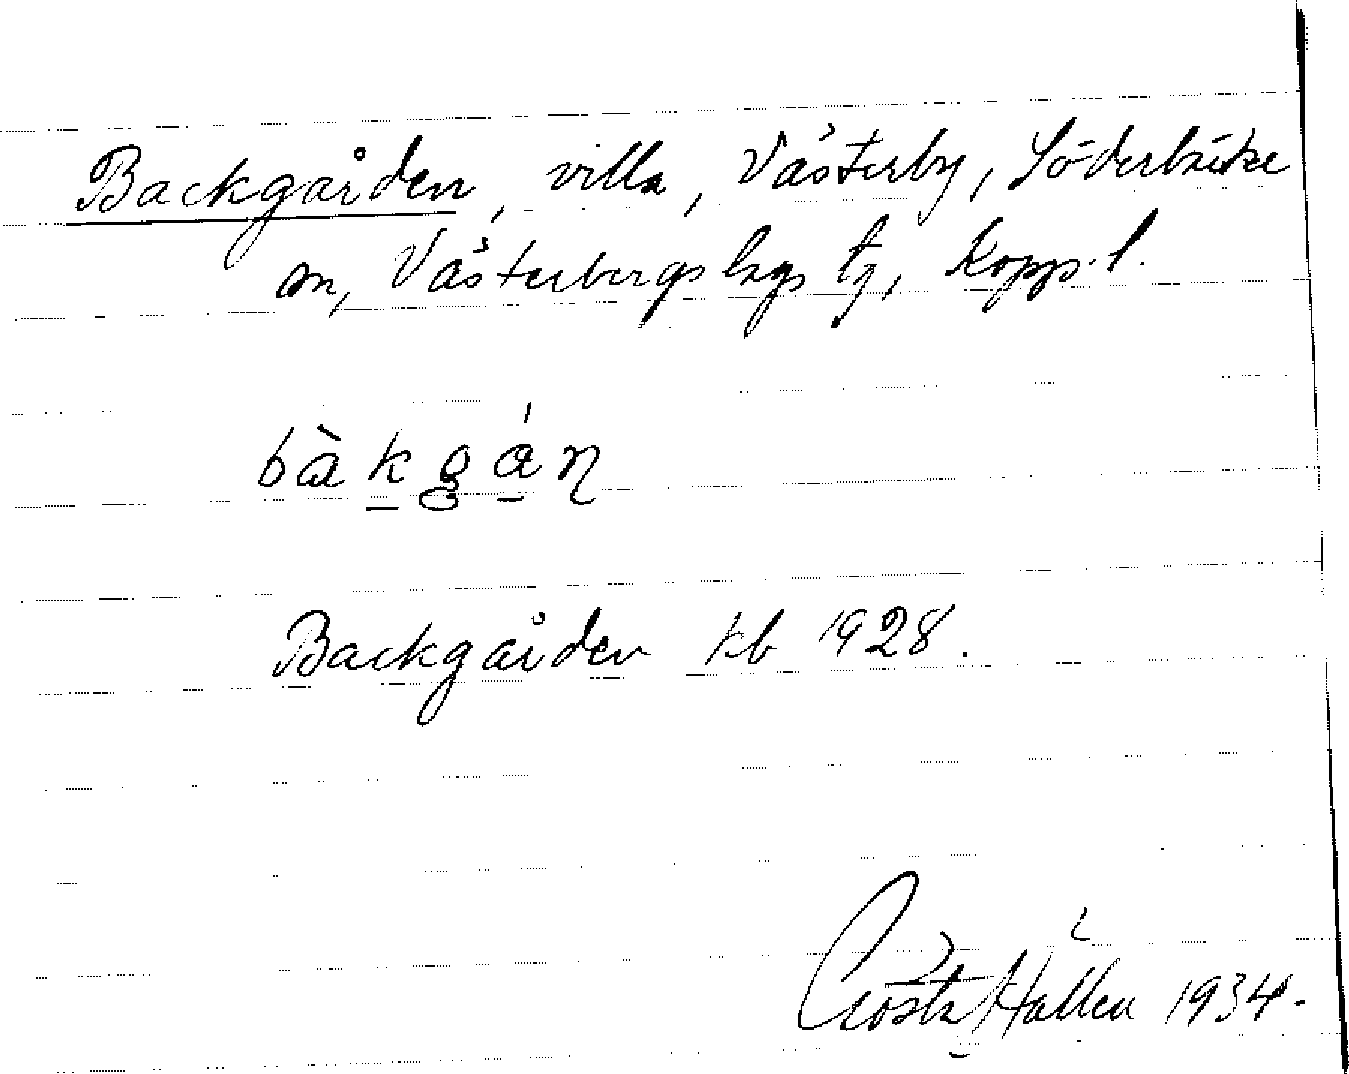 Backgården, villa, Västerby, Söderbärke
sn, Västerbergslags tg, Kopp. l.
bàkgán
Backgården kb 1928.
Gösta Hallen 1934.